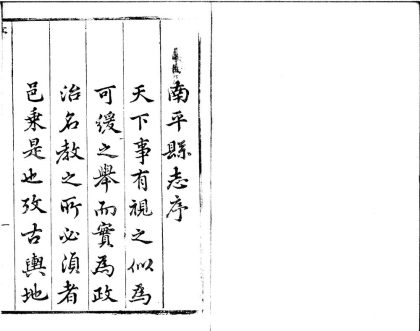 南平縣志序
天下事有視之似為
可緩之舉而實為政
治名教之所必湏者
邑乗是也攷古輿地